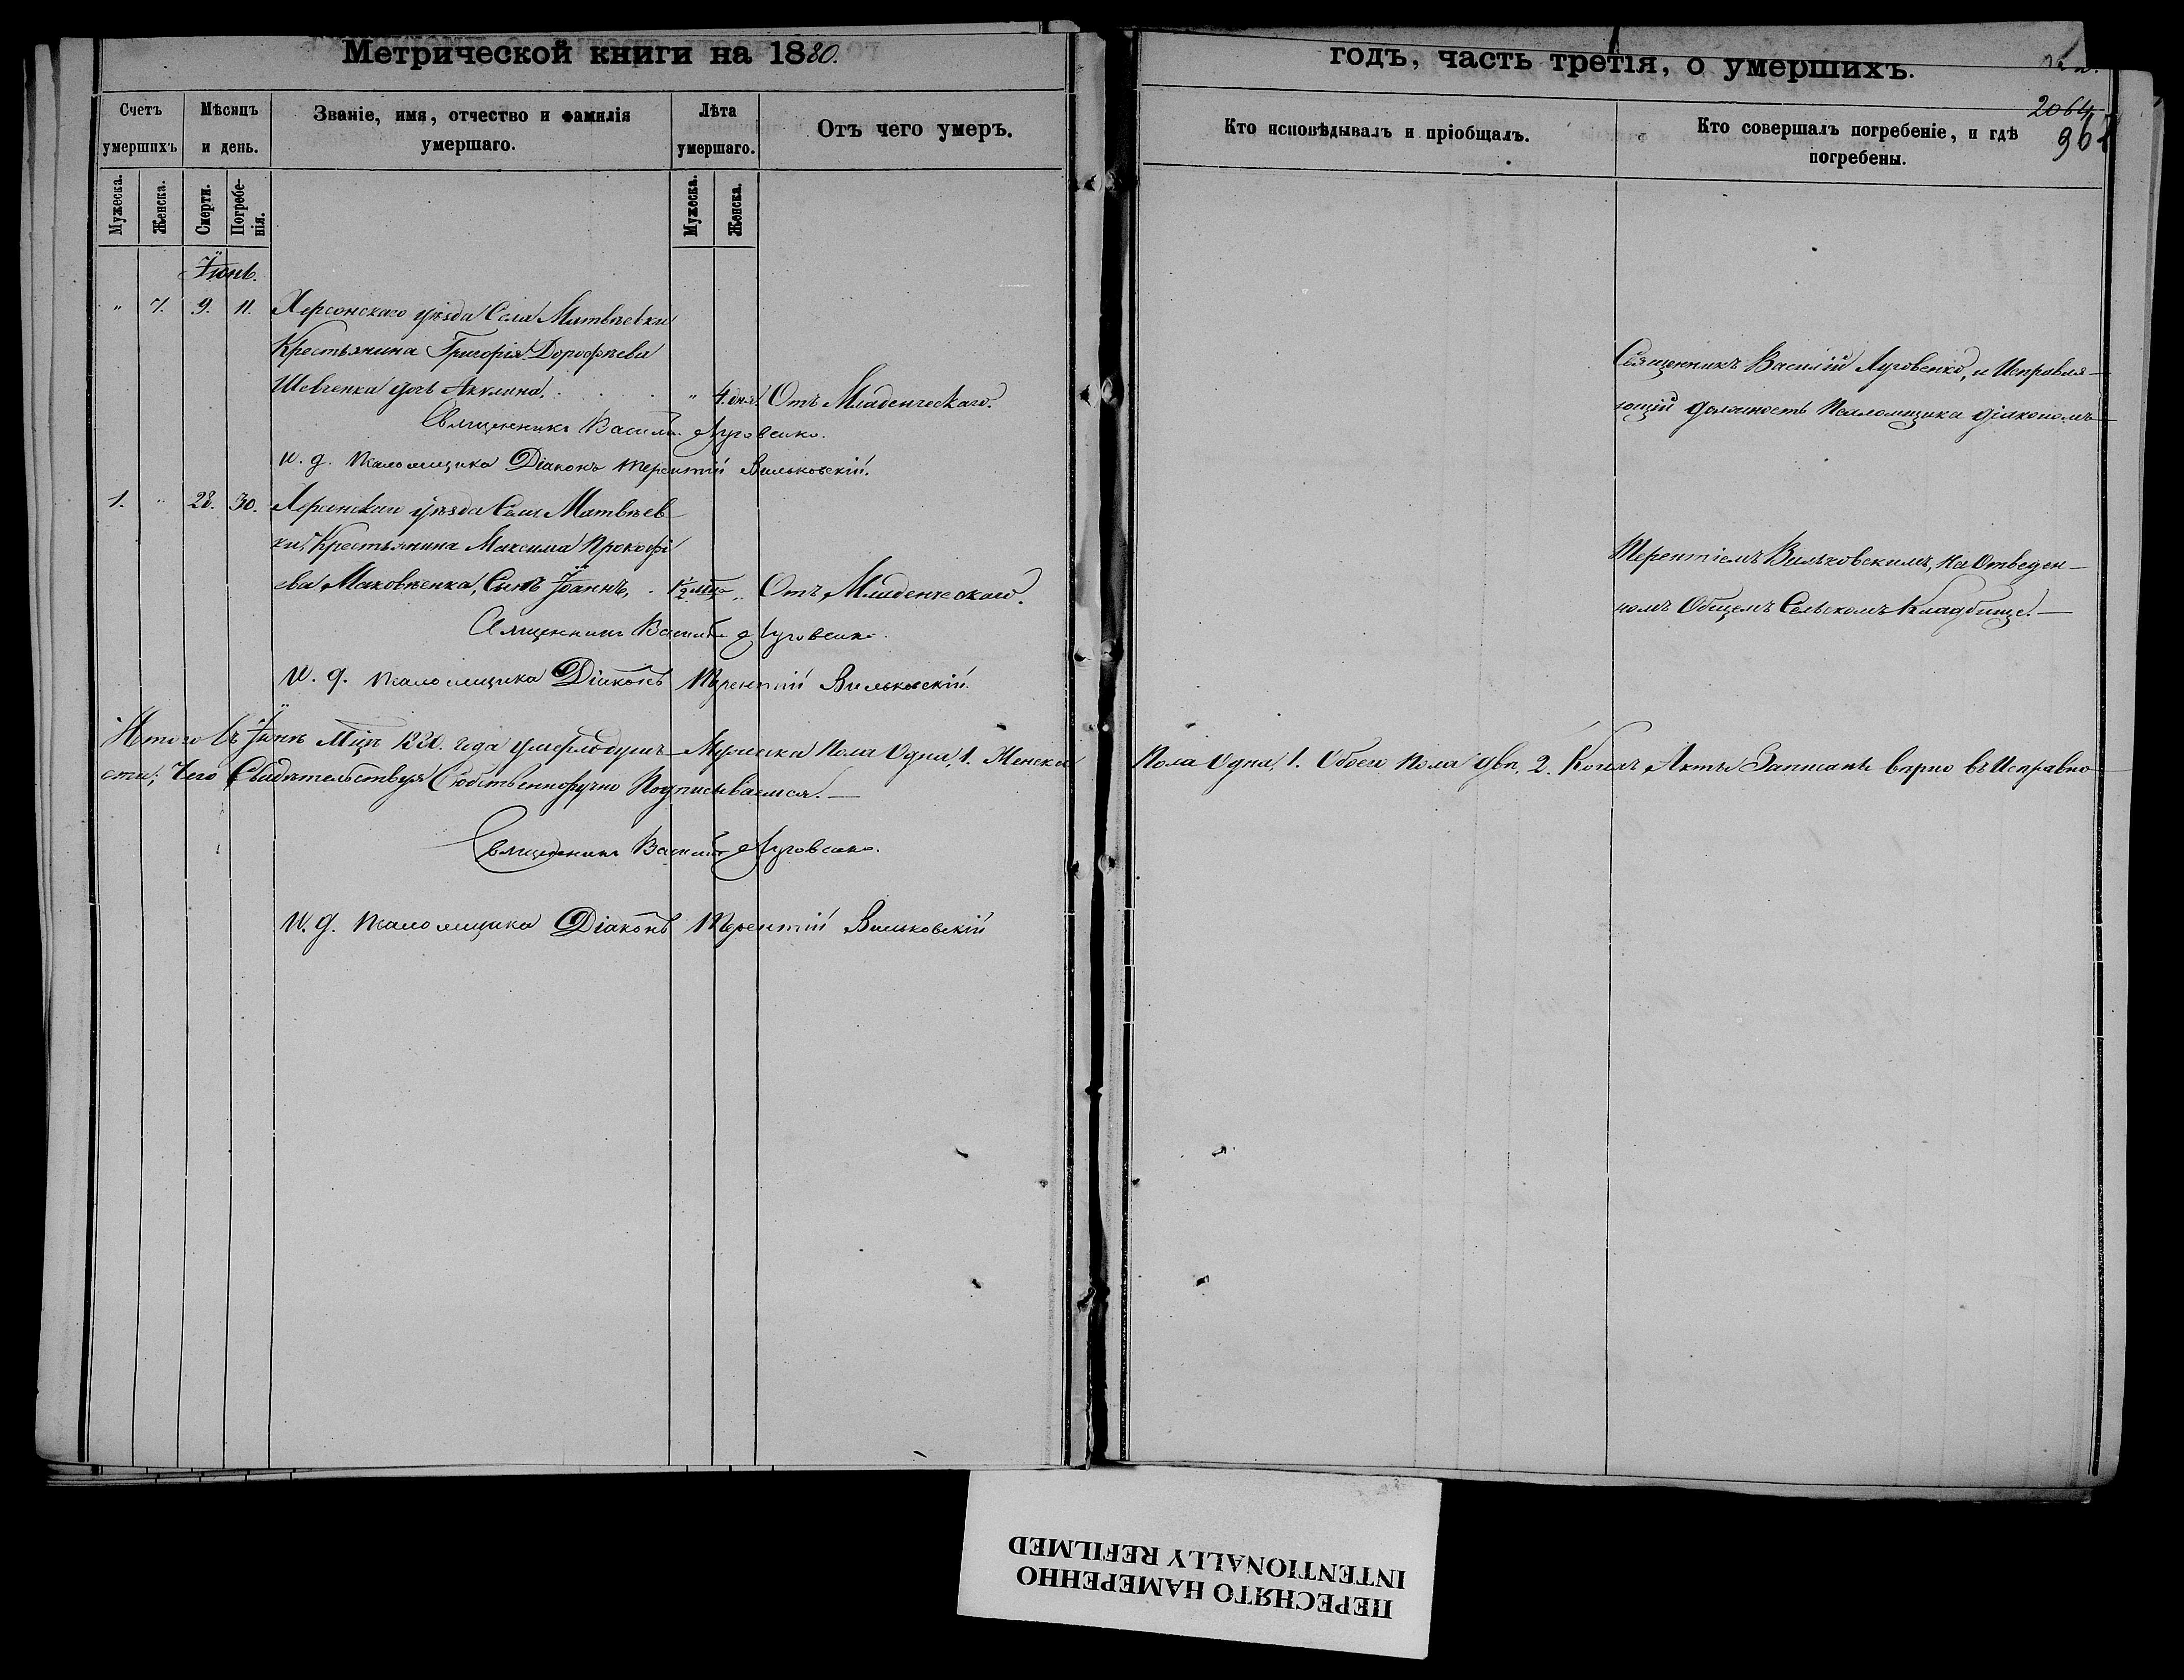 Метрической книги на 1880.
годъ, часть третія, о умершихъ.
2064
Счетъ умершихъ
Мѣсяцъ и день.
Званіе, имя, отчество и фамилія умершаго.
Лѣта умершаго.
Отъ чего умеръ.
Кто исповѣдывалъ и пріобщалъ.
Кто совершалъ погребеніе, и гдѣ погребены.
Мужеска.
Женска.
Смерти.
Погребенія.
Мужеска.
Женска.
Іюнь.
" 7. 9. 11. Херсонскаго уѣзда Села Матвѣевки
Крестьянина Григорія Дорофѣева
Шевченка дочь Акулина, . . . " 4. дня. Отъ Младенческаго.
Священникъ Василій Луговенко.
И. д. Псаломщика Діаконъ Терентій Вильковскій.
1. " 28. 30. Херсонскаго уѣзда Села Матвѣев
ки, Крестьянина Максима Прокофі
ева Маковѣенка, Сынъ Іоаннъ, . 1/2 мца " Отъ Младенческаго.
Священникъ Василій Луговенко.
И. д. Псаломщика Діаконъ Терентій Вильковскій.
Священникъ Василій Луговенко, и Исправля-
ющій должность Псаломщика діакономъ
Терентіемъ Вильковскимъ, на Отведен-
номъ Общемъ Сельскомъ Кладбище.—
Итого въ Іюнѣ Мцѣ 1880. года умерло душъ Мужеска Пола Одна, 1. Женска Пола Одна, 1. Обоего Пола двѣ, 2. Коихъ Акты Записаны вѣрно въ Исправно
сти; Чего Свидѣтельствуя Собственноручно Подписываемся.—
Священникъ Василій Луговенко.
И. д. Псаломщика Діаконъ Терентій Вильковскій
ПЕРЕСНЯТО НАМЕРЕННО
INTENTIONALLY REFILMED